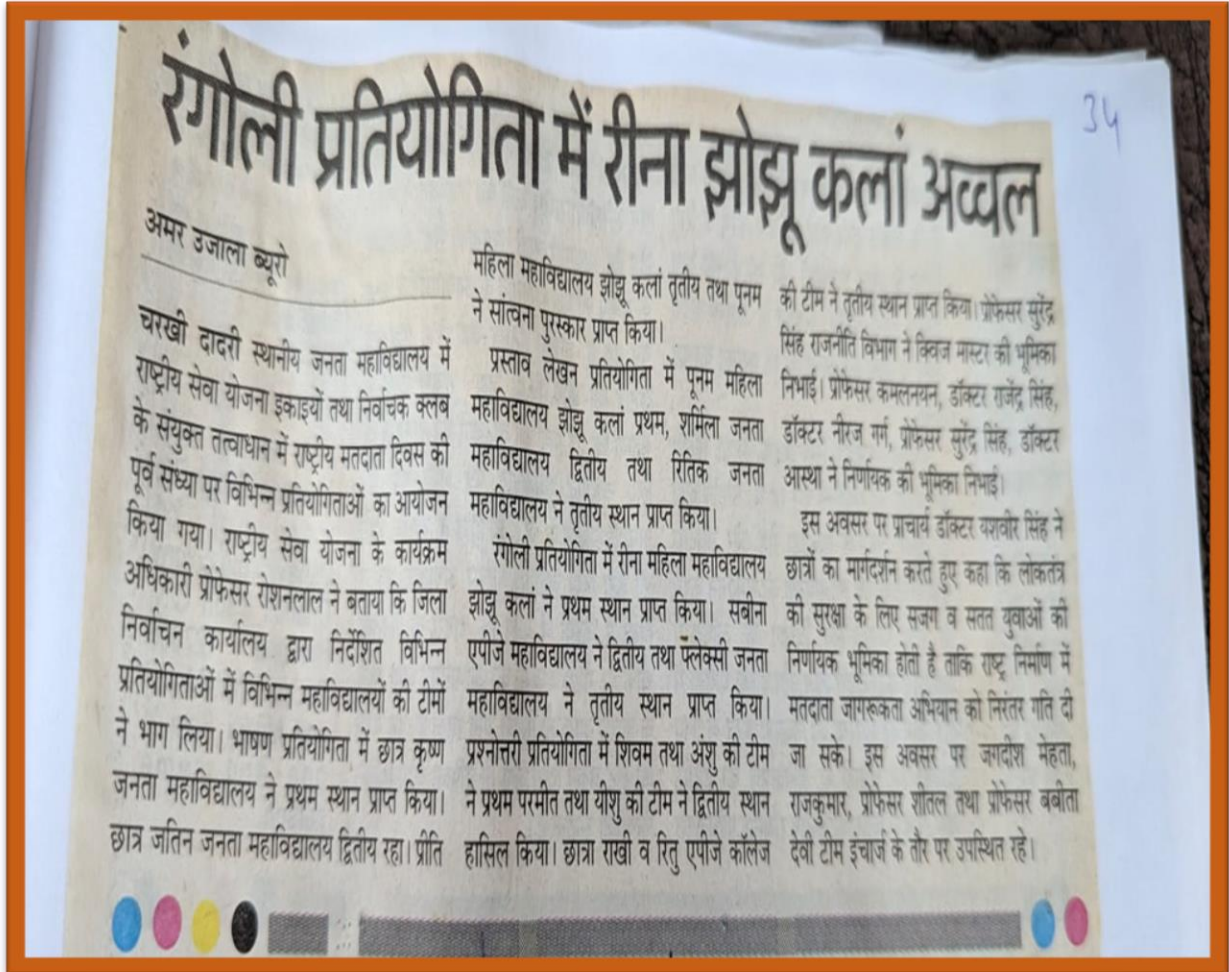 34
रंगोली प्रतियोगिता में रीना झोझू कलां अव्वल
अमर उजाला ब्यूरो
चरखी दादरी स्थानीय जनता महाविद्यालय में
राष्ट्रीय सेवा योजना इकाइयों तथा निर्वाचक क्लब
के संयुक्त तत्वाधान में राष्ट्रीय मतदाता दिवस की
पूर्व संध्या पर विभिन्न प्रतियोगिताओं का आयोजन
किया गया। राष्ट्रीय सेवा योजना के कार्यक्रम
अधिकारी प्रोफेसर रोशनलाल ने बताया कि जिला
निर्वाचन कार्यालय द्वारा निर्देशित विभिन्न
प्रतियोगिताओं में विभिन्न महाविद्यालयों की टीमों
ने भाग लिया। भाषण प्रतियोगिता में छात्र कृष्ण
जनता महाविद्यालय ने प्रथम स्थान प्राप्त किया।
छात्र जतिन जनता महाविद्यालय द्वितीय रहा। प्रीति
महिला महाविद्यालय झोझू कलां तृतीय तथा पूनम
ने सांत्वना पुरस्कार प्राप्त किया।
प्रस्ताव लेखन प्रतियोगिता में पूनम महिला
महाविद्यालय झोझू कलां प्रथम, शर्मिला जनता
महाविद्यालय द्वितीय तथा रितिक जनता
महाविद्यालय ने तृतीय स्थान प्राप्त किया।
रंगोली प्रतियोगिता में रीना महिला महाविद्यालय
झोझू कलां ने प्रथम स्थान प्राप्त किया। सबीना
एपीजे महाविद्यालय ने द्वितीय तथा फ्लेक्सी जनता
महाविद्यालय ने तृतीय स्थान प्राप्त किया।
प्रश्नोत्तरी प्रतियोगिता में शिवम तथा अंशु की टीम
ने प्रथम परमीत तथा यीशु की टीम ने द्वितीय स्थान
हासिल किया। छात्रा राखी व रितु एपीजे कॉलेज
की टीम ने तृतीय स्थान प्राप्त किया। प्रोफेसर सुरेंद्र
सिंह राजनीति विभाग ने क्विज मास्टर की भूमिका
निभाई। प्रोफेसर कमलनयन, डॉक्टर राजेंद्र सिंह,
डॉक्टर नीरज गर्ग, प्रोफेसर सुरेंद्र सिंह, डॉक्टर
आस्था ने निर्णायक की भूमिका निभाई।
इस अवसर पर प्राचार्य डॉक्टर यशवीर सिंह ने
छात्रों का मार्गदर्शन करते हुए कहा कि लोकतंत्र
की सुरक्षा के लिए सजग व सतत युवाओं की
निर्णायक भूमिका होती है ताकि राष्ट्र निर्माण में
मतदाता जागरूकता अभियान को निरंतर गति दी
जा सके। इस अवसर पर जगदीश मेहता,
राजकुमार, प्रोफेसर शीतल तथा प्रोफेसर बबीता
देवी टीम इंचार्ज के तौर पर उपस्थित रहे।